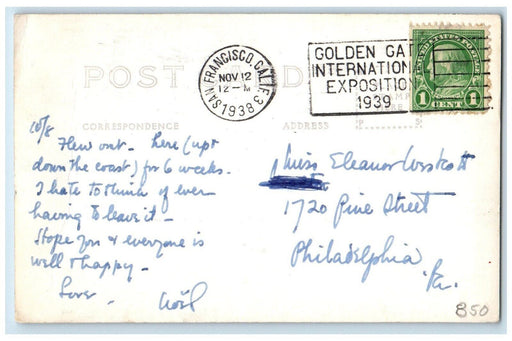 SAN FRANCISCO, CALIF. 3
NOV 12
12-M
1938
GOLDEN GAT
INTERNATION
EXPOSITION
1939
UNITED STATES POSTAGE
1 CENT 1
POST CARD
CORRESPONDENCE
ADDRESS
10/8
Flew out - here (up &
down the coast) for 6 weeks -
I hate to think of ever
having to leave it -
Hope you & everyone is
well & happy -
Love,
Miss Eleanor Westcott
1720 Pine Street
Philadelphia
Pa.
850